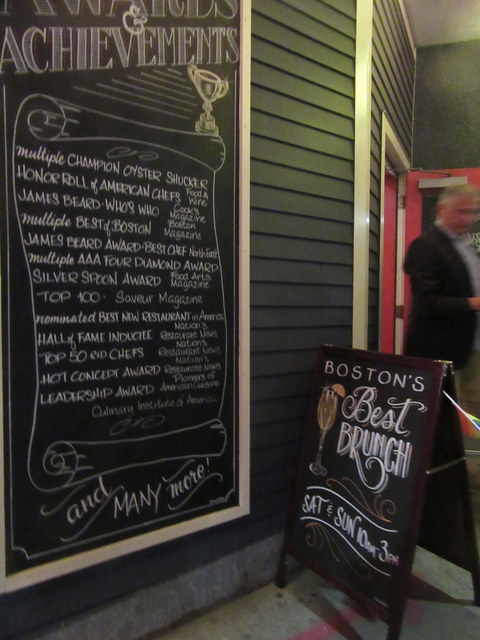 AWARDS
&
ACHIEVEMENTS
multiple CHAMPION OYSTER SHUCKER
HONOR ROLL of AMERICAN CHEFS Food & Wine
JAMES BEARD · WHO'S WHO Cook's Magazine
multiple BEST of BOSTON Boston Magazine
JAMES BEARD AWARD · BEST CHEF NorthEast
multiple AAA FOUR DIAMOND AWARD
SILVER SPOON AWARD Food Arts Magazine
TOP 100 · Saveur Magazine
nominated BEST NEW RESTAURANT in America
HALL of FAME INDUCTEE Nation's Restaurant News
TOP 50 CHEFS Nation's Restaurant News
HOT CONCEPT AWARD Nation's Restaurant News
LEADERSHIP AWARD Pioneers of American Cuisine
Culinary Institute of America
and MANY more!
BOSTON'S
Best
BRUNCH
SAT & SUN 10AM-3PM